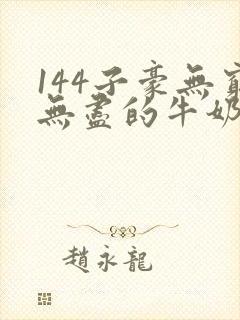 144子豪無窮
無盡的牛奶
趙永龍